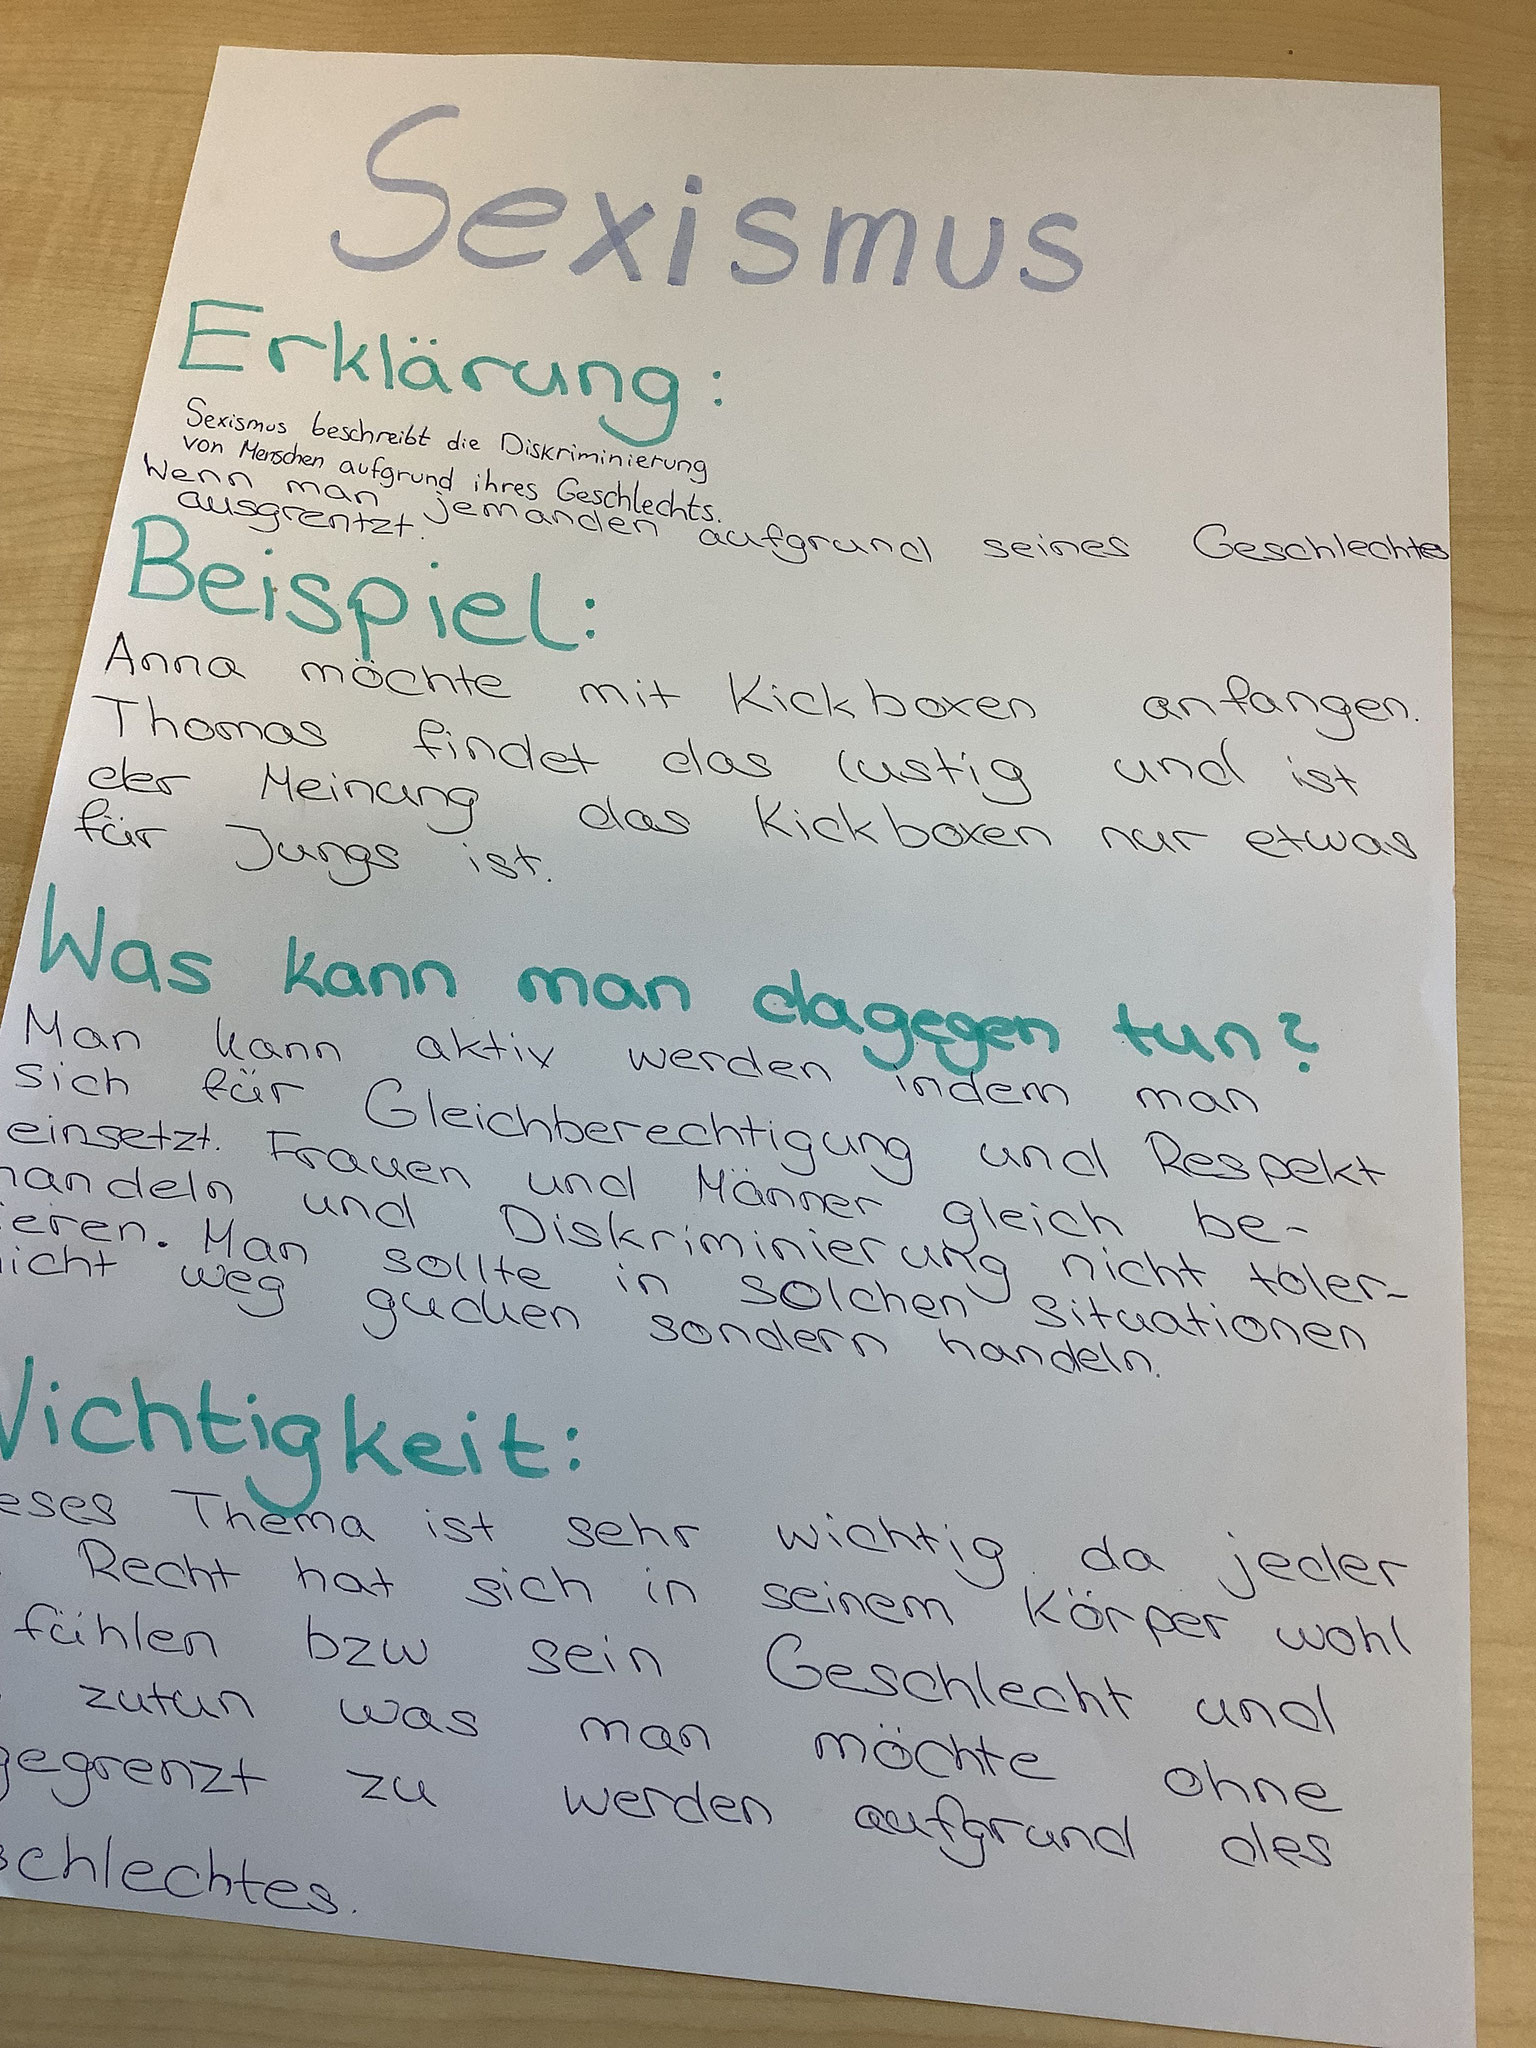 Sexismus
Erklärung:
Sexismus beschreibt die Diskriminierung
von Menschen aufgrund ihres Geschlechts.
Wenn man jemanden aufgrund seines Geschlechtes
ausgrentzt.
Beispiel:
Anna möchte mit Kickboxen anfangen.
Thomas findet das lustig und ist
der Meinung das Kickboxen nur etwas
für Jungs ist.
Was kann man dagegen tun?
Man kann aktiv werden indem man
sich für Gleichberechtigung und Respekt
einsetzt. Frauen und Männer gleich be-
handeln und Diskriminierung nicht toler-
ieren. Man sollte in solchen situationen
nicht weg gucken sondern handeln.
Wichtigkeit:
eses Thema ist sehr wichtig da jeder
Recht hat sich in seinem Körper wohl
fühlen bzw sein Geschlecht und
zutun was man möchte ohne
gegrenzt zu werden aufgrund des
schlechtes.